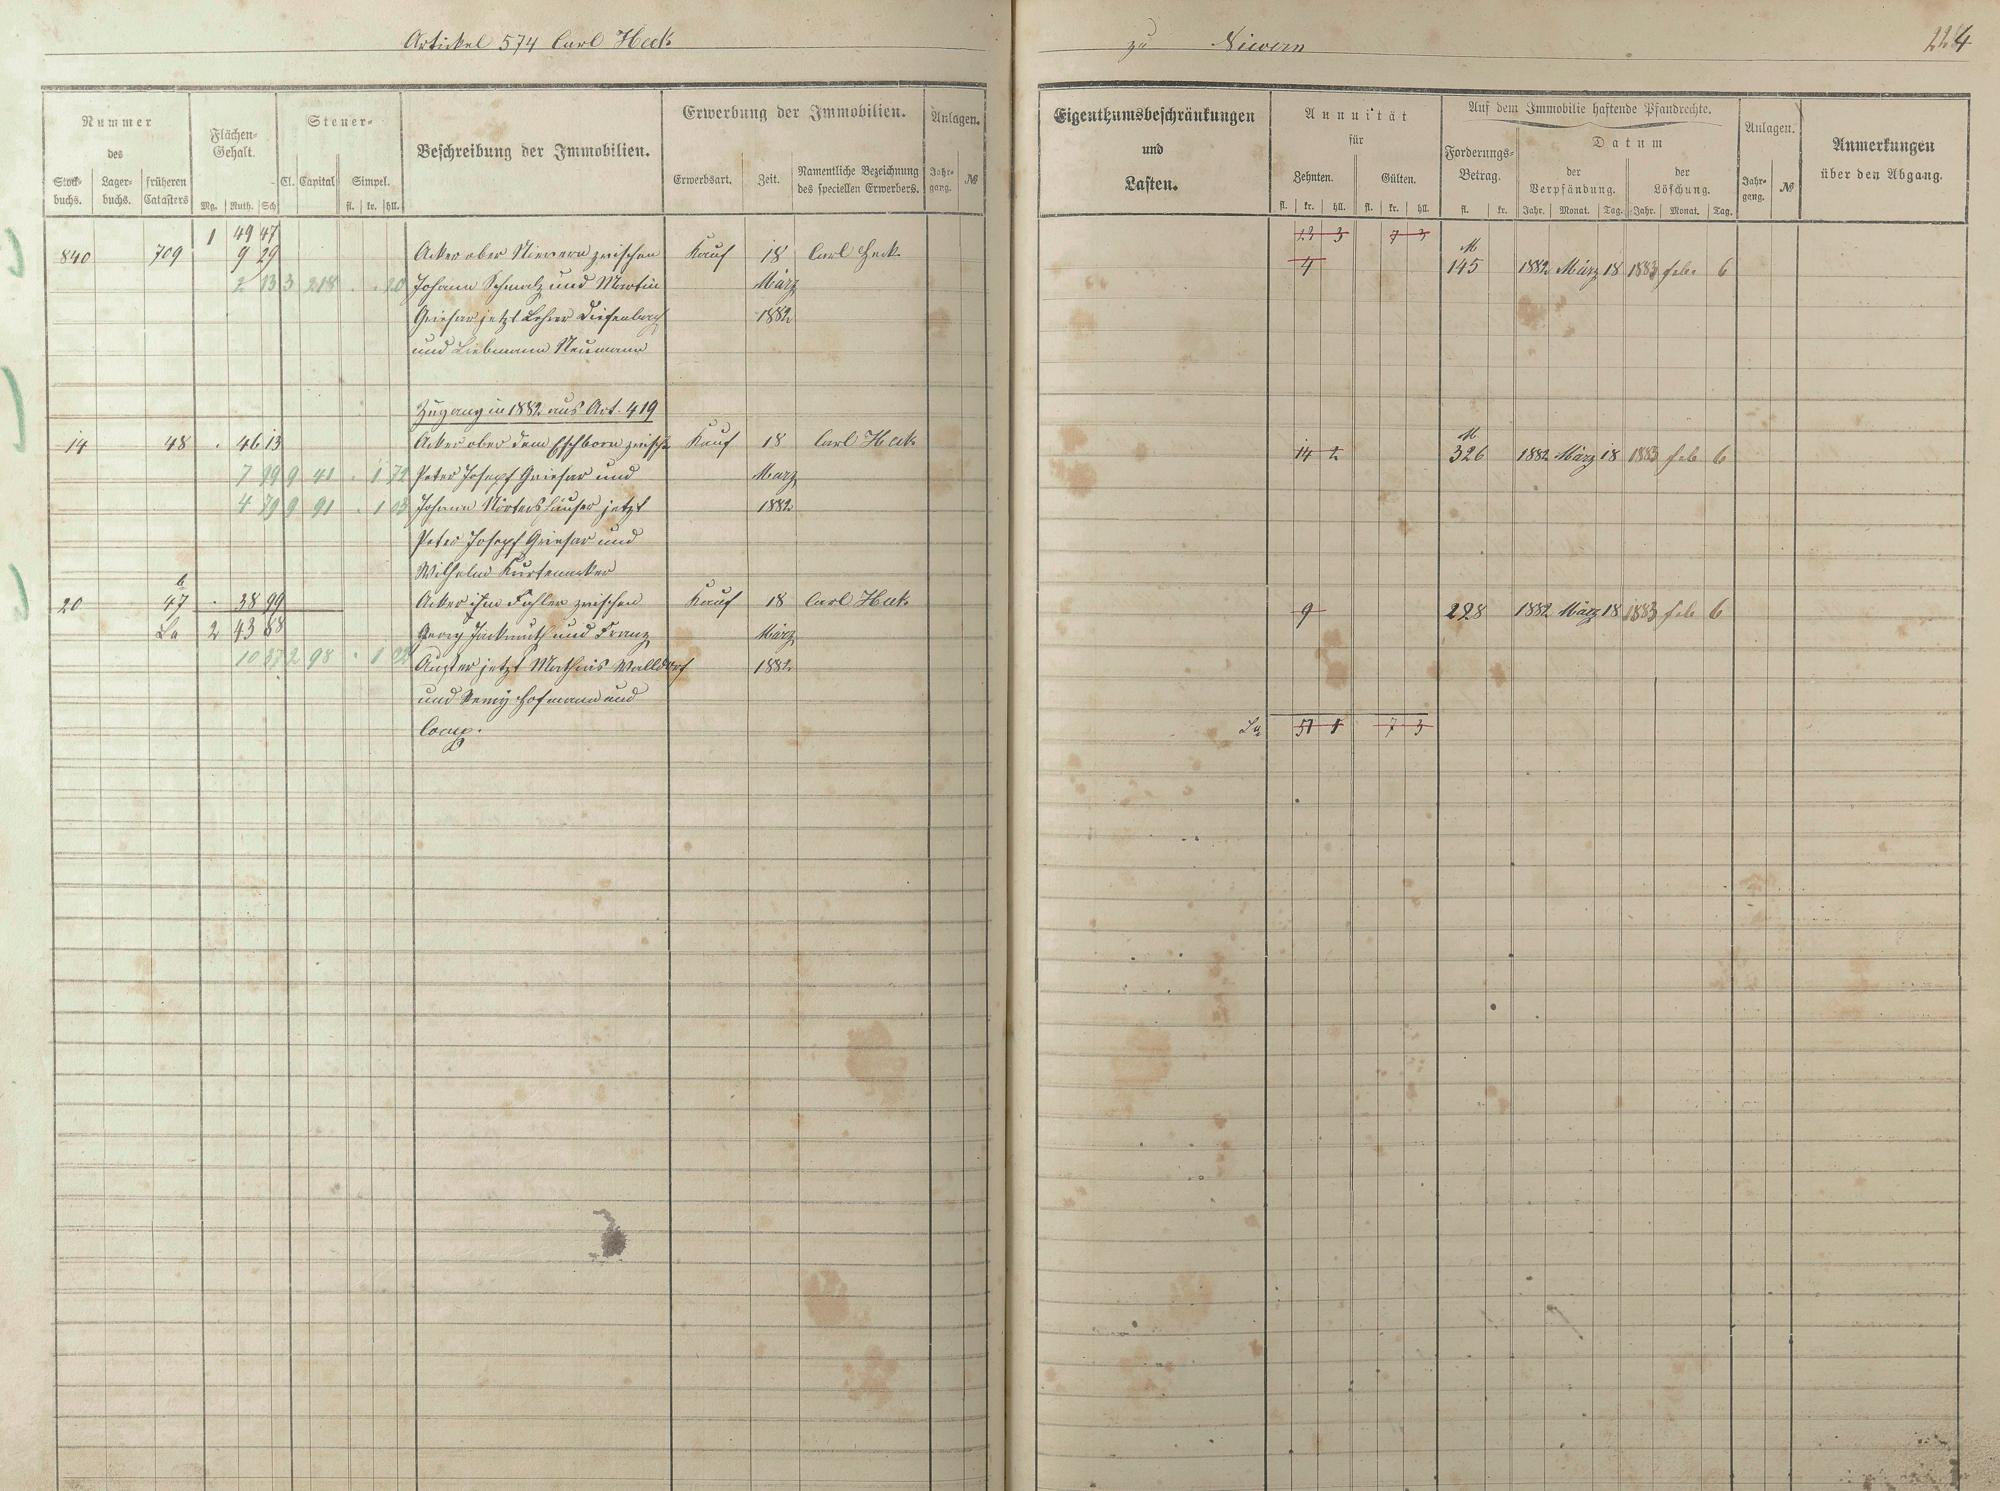 Artikel 574 Carl Heck
zu Nievern
224
Nummer
des
Stock-
buchs.
Lager-
buchs.
früheren
Catasters
Flächen-
Gehalt.
Mg. Ruth. Sch
Steuer-
Cl. Capital Simpel.
fl. kr. hll.
Beschreibung der Immobilien.
Erwerbung der Immobilien.
Erwerbsart. Zeit.
Namentliche Bezeichnung
des speciellen Erwerbers.
Anlagen.
Jahr-
gang.
№
Eigenthumsbeschränkungen
und
Lasten.
Annuität
für
Zehnten. Gülten.
fl. kr. hll. fl. kr. hll.
Auf dem Immobilie haftende Pfandrechte.
Forderungs-
Betrag.
fl. kr.
Datum
der
Verpfändung.
Jahr. Monat. Tag.
der
Löschung.
Jahr. Monat. Tag.
Anlagen.
Jahr-
gang.
№
Anmerkungen
über den Abgang.
1 49 47 7 3
840 709 9 29 Acker ober Nievern zwischen Kauf 18 Carl Heck 4 M 145 1882 März 18 1883 Feb. 6
2 13 3 218 . . 20 Johann Schmalz und Martin März
Griesar jetzt Lehrer Diefenbach 1882
und Liebmann Neumann
Zugang in 1882 aus Art. 419
14 48 . 46 13 Acker ober dem Eschborn zwisch Kauf 18 Carl Heck 14 2 M 326 1882 März 18 1883 Feb 6
7 9 41 . 1 72 Peter Josepf Griesar und März
4 79 9 91 . 1 Johann Nörtershäuser jetzt 1882
Peter Josepf Griesar und
Wilhelm Kurtenacker
20 47 . 38 99 Acker ihm zwischen Kauf 18 Carl Heck 9 228 1882 März 18 1883 Feb 6
La 2 43 Georg und Franz März
10 2 98 . 1 jetzt Mathias Walldorf 1882
und Remÿ Hofmann und
Comp. La 7 3